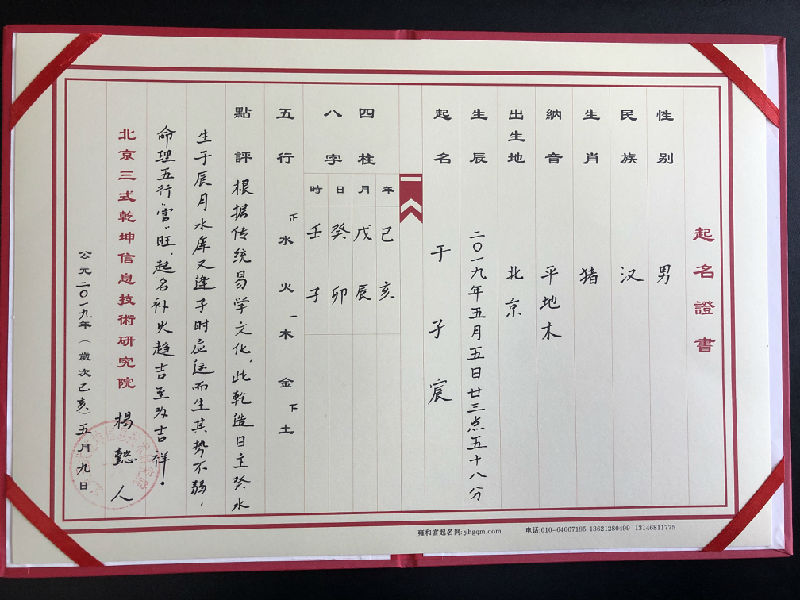 起名證書
性别 男
民族 汉
生肖 猪
納音 平地木
出生地 北京
生辰 二〇一九年五月五日廿三点五十八分
起名 于子宸
四柱八字
年 己亥
月 戊辰
日 癸卯
時 壬子
五行 水 火 木 金 土
點評 根据传统易学文化,此乾造日主癸水
生于辰月水库又逢子时应运而生其势不弱,
命理五行喜旺,起名补火趋吉至为吉祥。
北京三式乾坤信息技術研究院 楊懿人
公元二〇一九年(歲次己亥)五月九日
雍和宫起名网:yhgqm.com
电话:010-64007195